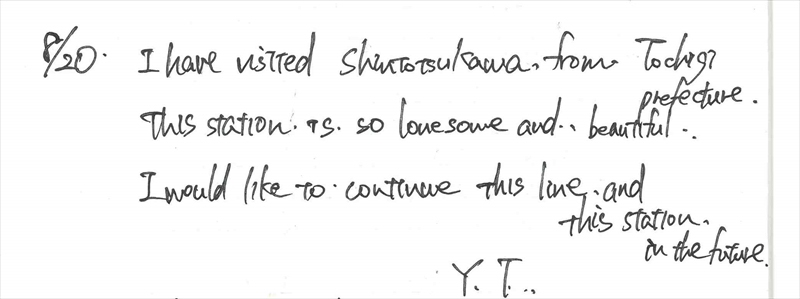 8/20. I have visited Shintotsukawa. from. Tochigi
prefecture.
This station. is. so lonesome and.. beautiful..
I would like to. continue this line. and
this station.
in the future.
Y. T..